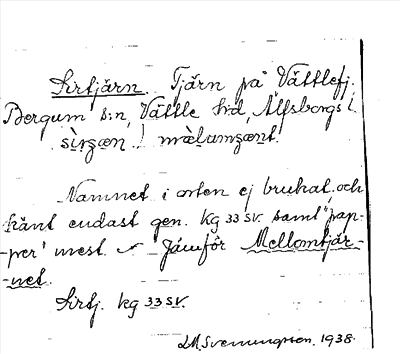 Sirtjärn. Tjärn på Vättlefj.
Bergum s:n, Vättle hd, Älfsborgs l.
sìrʒæn. ! mæ̀lumʒænt.
Namnet i orten ej brukat, och
känt endast gen. kg 33 sv. samt "pap-
-per" mest. Jämför Mellomtjär-
net.
Sirtj. kg 33 sv.
1938.